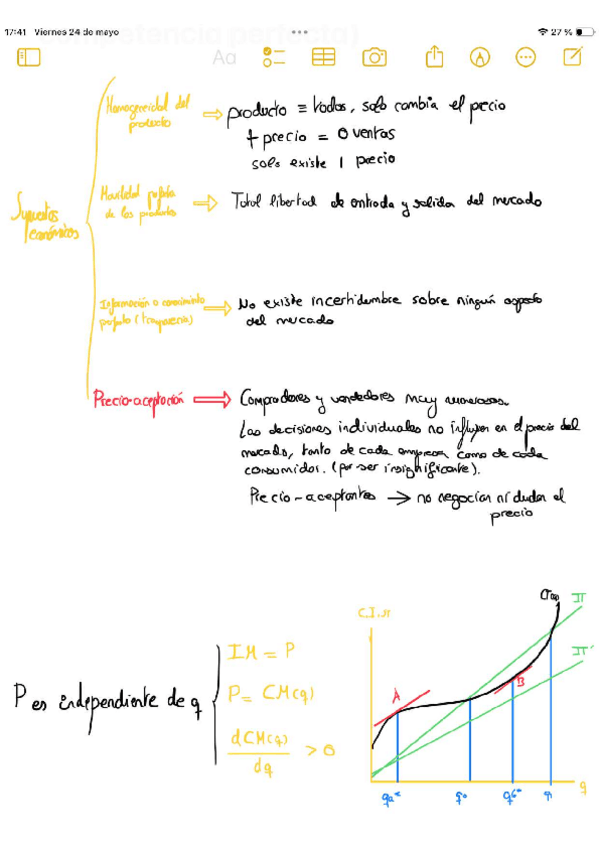 17:41 Viernes 24 de mayo
27 %
competencia perfecta)
Aa
Supuestos
económicos
Homogeneidad del
producto
producto ≡ todos, solo cambia el precio
+ precio = 0 ventas
solo existe 1 precio
Movilidad perfecta
de los productos
Total libertad de entrada y salida del mercado
Información o conocimiento
perfecto (transparencia)
No existe incertidumbre sobre ningún aspecto
del mercado
Precio-aceptación
Compradores y vendedores muy numerosos.
Las decisiones individuales no influyen en el precio del
mercado, tanto de cada empresa como de cada
consumidor. (por ser insignificante).
Precio-aceptantes → no negocian ni dudan el
precio
P es independiente de q
IM = P
P = CM(q)
dCM(q)
dq
> 0
A
B
q